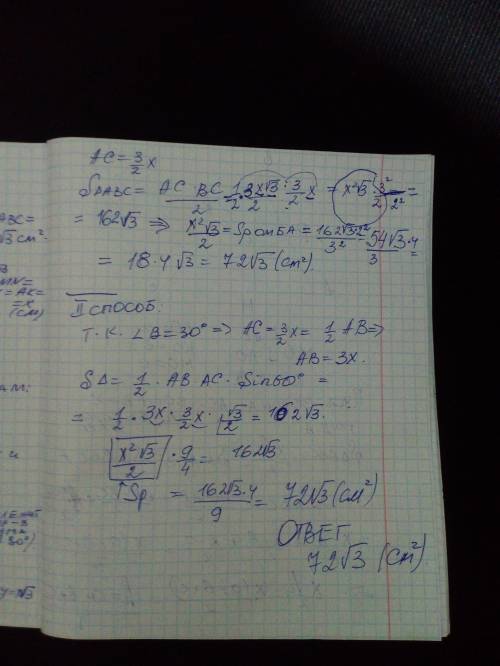 AC = 3/2 x
S△ABC = AC · BC / 2 = 1/2 · 3x√3 / 2 · 3/2 x = x²√3/2 · 3²/2² =
= 162√3 ⇒ x²√3/2 = Sромба = 162√3·2²/3² = 54√3·4/3 =
= 18·4√3 = 72√3 (см²)
II способ.
Т.к. ∠B = 30° => AC = 3/2 x = 1/2 AB =>
AB = 3x.
S△ = 1/2 · AB AC · Sin60° =
= 1/2 · 3x · 3/2 x · √3/2 = 162√3.
x²√3/2 · 9/4 = 162√3
Sp = 162√3·4/9 = 72√3 (см²)
ОТВЕТ
72√3 (см²)
ABC =
√3 см².
MN =
= AK =
= x
(см)
АМ:
и
30°)
y = √3